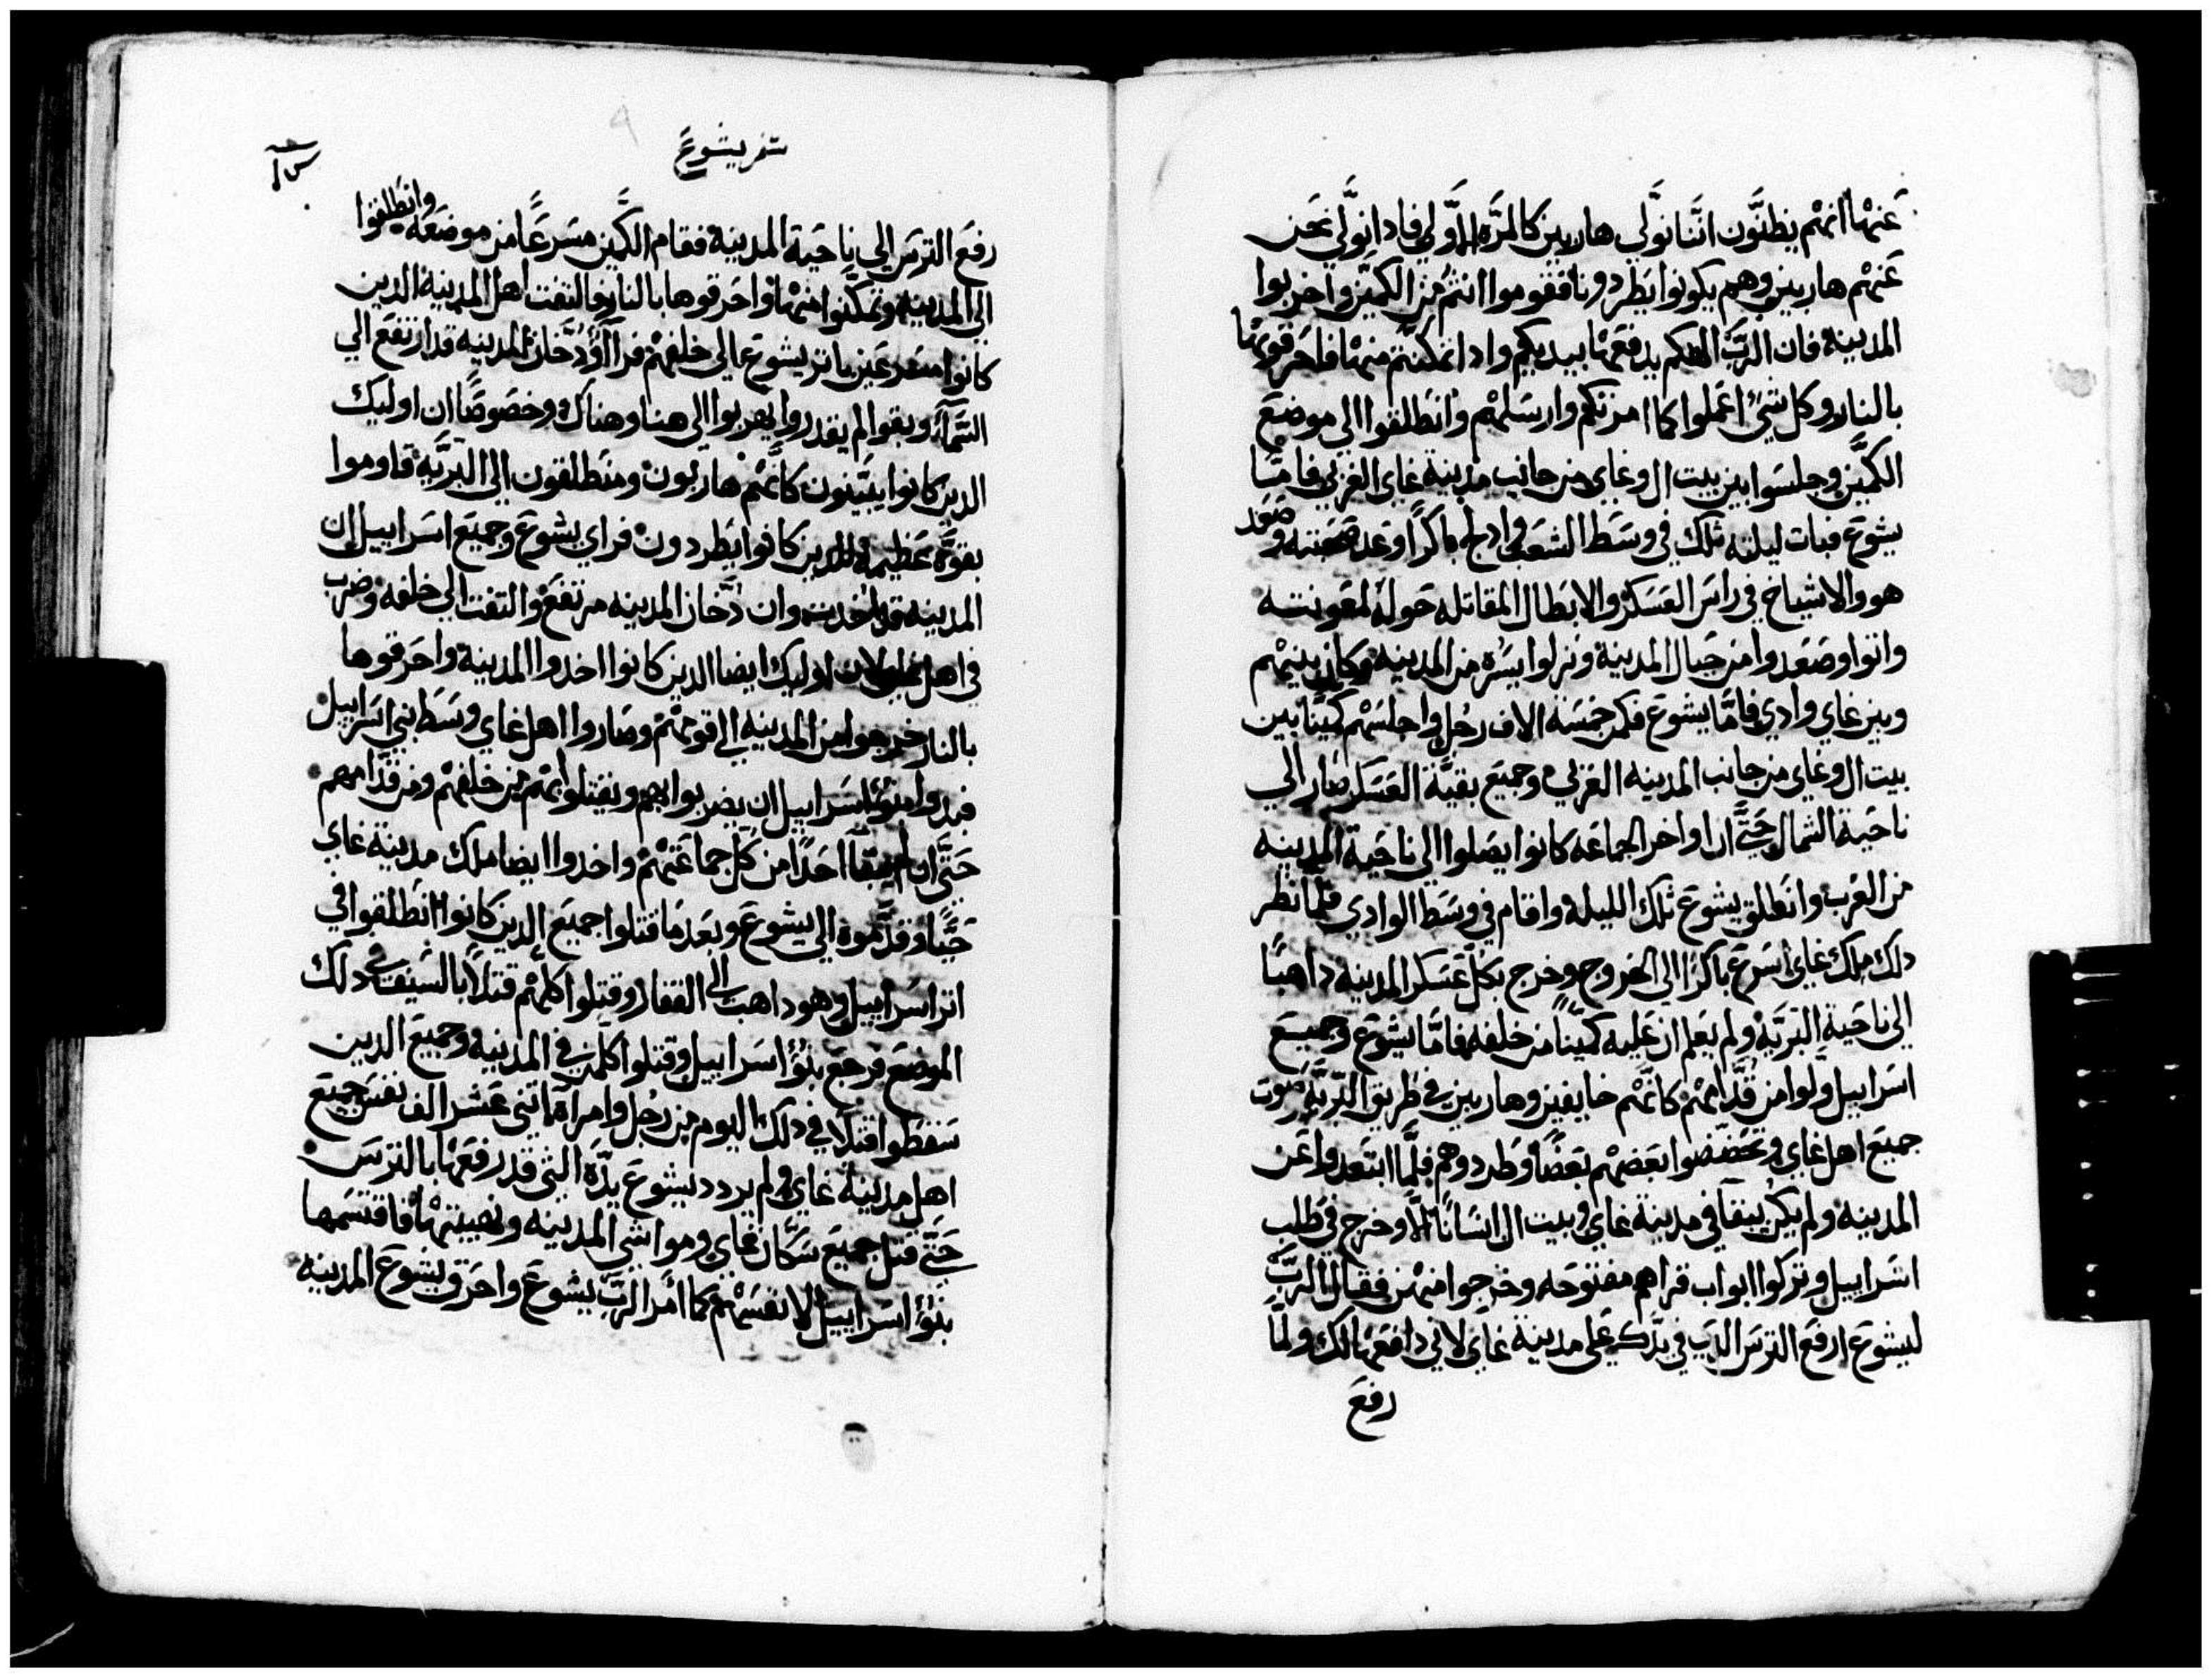 عَنها انهم يظنَّون انَّنا نوَّلي هاربين كالمرَّه الاَولي فادا نوَّلي نحَن
عَنهم هاربين وهم يكونوا يطردونا فقوموا انتم من الكمَّين واخربوا
المدينه فان الربَّ الهكم يدفعَها بيديكم وادا تمكنتم منها فاحَرقوها
بالنار وكل شيٌ اعَملوا كما امرتكم وارسَلهم وانطلقوا الي موضعَ
الكمَّين وجلسَوا بين بيت ال وغاي من جانب مدينة غاي الغربي فامَّا
يشوعَ فبات ليلته تلك في وسَط الشعَب وادلج باكرًا وعَد صحبته وصَعَد
هو والاشياخ في راسَ العَسَكر والابطال المقاتله حَوله لمعَونته
واتوا وصَعَدوا من جبال المدينه ونزلوا يسَرة من المدينه وكان بينهم
وبين غاي وادي فامَّا يشوعَ فكمن خمسَة الاف رجُل واجلسَهم كمَّينًا بين
بيت ال وغاي من جانب المدينه الغربي وجميَع بقيَّة العَسَكر صَار الي
ناحَية الشمال حَتَّي ان اواخر الجماعَه كانوا يصَلوا الي ناحَية المدينه
من الغَرب وانطلق يشوعَ تلك الليله واقام في وسَط الوادي فلمَّا نظر
دلك ملك غاي اسَرعَ باكرًا الي الخروج وخرج بكل عَسَكر المدينه داهبًا
الي ناحَية البَريَّة ولم يعَلم ان عَليه كمَّينًا من خلفه فامَّا يشوعَ وجميَع
اسَراييل ولَّوا من قُدَّامهم كانَّهم خايفين وهاربين في طريق البَريَّه فصَوت
جميَع اهل غاي وتحَضضوا بعَضهم بعَضًا وطردوهم فلمَّا ابتعَدوا عَن
المدينه ولم يكن يبقا في مدينة غاي وبيت ال انسَانًا الاَّ وخرج في طلب
اسَراييل وتركوا ابواب قراهم مفتوحَه وخرجوا منهن فقال الربَّ
ليشوعَ ارفَع الترسَ الدي في يدَّك عَلي مدينة غاي لاني دافعَها لك ولمَّا
رفَع
سَفر يشوعَ
رفَع الترسَ الي ناحَية المدينه فقام الكَّمين مسَرعًَا من موضعَه وانطلقوا
الي المدينه وتمكَّنوا منها واحَرقوها بالنار فالتفت اهل المدينة الدين
كانوا مندفعَين باتر يشوعَ الي خلفهم فراآوُ دخَّان المدينه قد ارتفَع الي
السَّماَءِ وبقوا لم يقدروا يهربوا الي هنا وهناك وخصَوصًَا ان اوليك
الدين كانوا يبيَّنون كانَّهم هاربون ومنطلقون الي البَريَّة قاوموا
بقوَّة عَظيمة للدين كانوا يطردون فراي يشوعَ وجميَع اسَراييل ان
المدينه قد اخدت وان دَّخان المدينه مرتفَع والتفت الي خلفه وضرب
في اهل غاي لان اوليك ايضا الدين كانوا اخدوا المدينة واحَرقوها
بالنار خرجوا من المدينه الي قومهم وصَاروا اهل غاي وسَط بني اسَراييل
فبدوا بنوُ اسَراييل ان يضربوا بهم ويقتلوا بهم من خلفهم ومن قدَّامهم
حَتَّي ان لم يبقا احَدًا من كل جماعَتهم واخدوا ايضا ملك مدينة غاي
حَيًّا وقدَّموه الي يشوعَ وبعَد ما قتلوا جميَع الدين كانوا انطلقوا في
اتر اسَراييل وهو داهب الي القفار وقتلوا كلهم قتلاً بالسَيف في دلك
الموضَع فرجَع بنوُ اسَراييل وقتلوا كلمن في المدينه وجميَع الدين
سَقطوا قتلا في دلك اليوم من رجُل وامراة اتني عَشر الف نفسَ جميَع
اهل مدينة غاي ولم يردد يشوعَ يدَّه التي قد رفعَها بالترسَ
حَتَّي قتل جميَع سَكَّان غاي ومواشي المدينه ونهيبتها فاقتسَمها
بنوُ اسَراييل لانفسَهم كما امَر الربَّ يشوعَ واحَرق يشوعَ المدينه